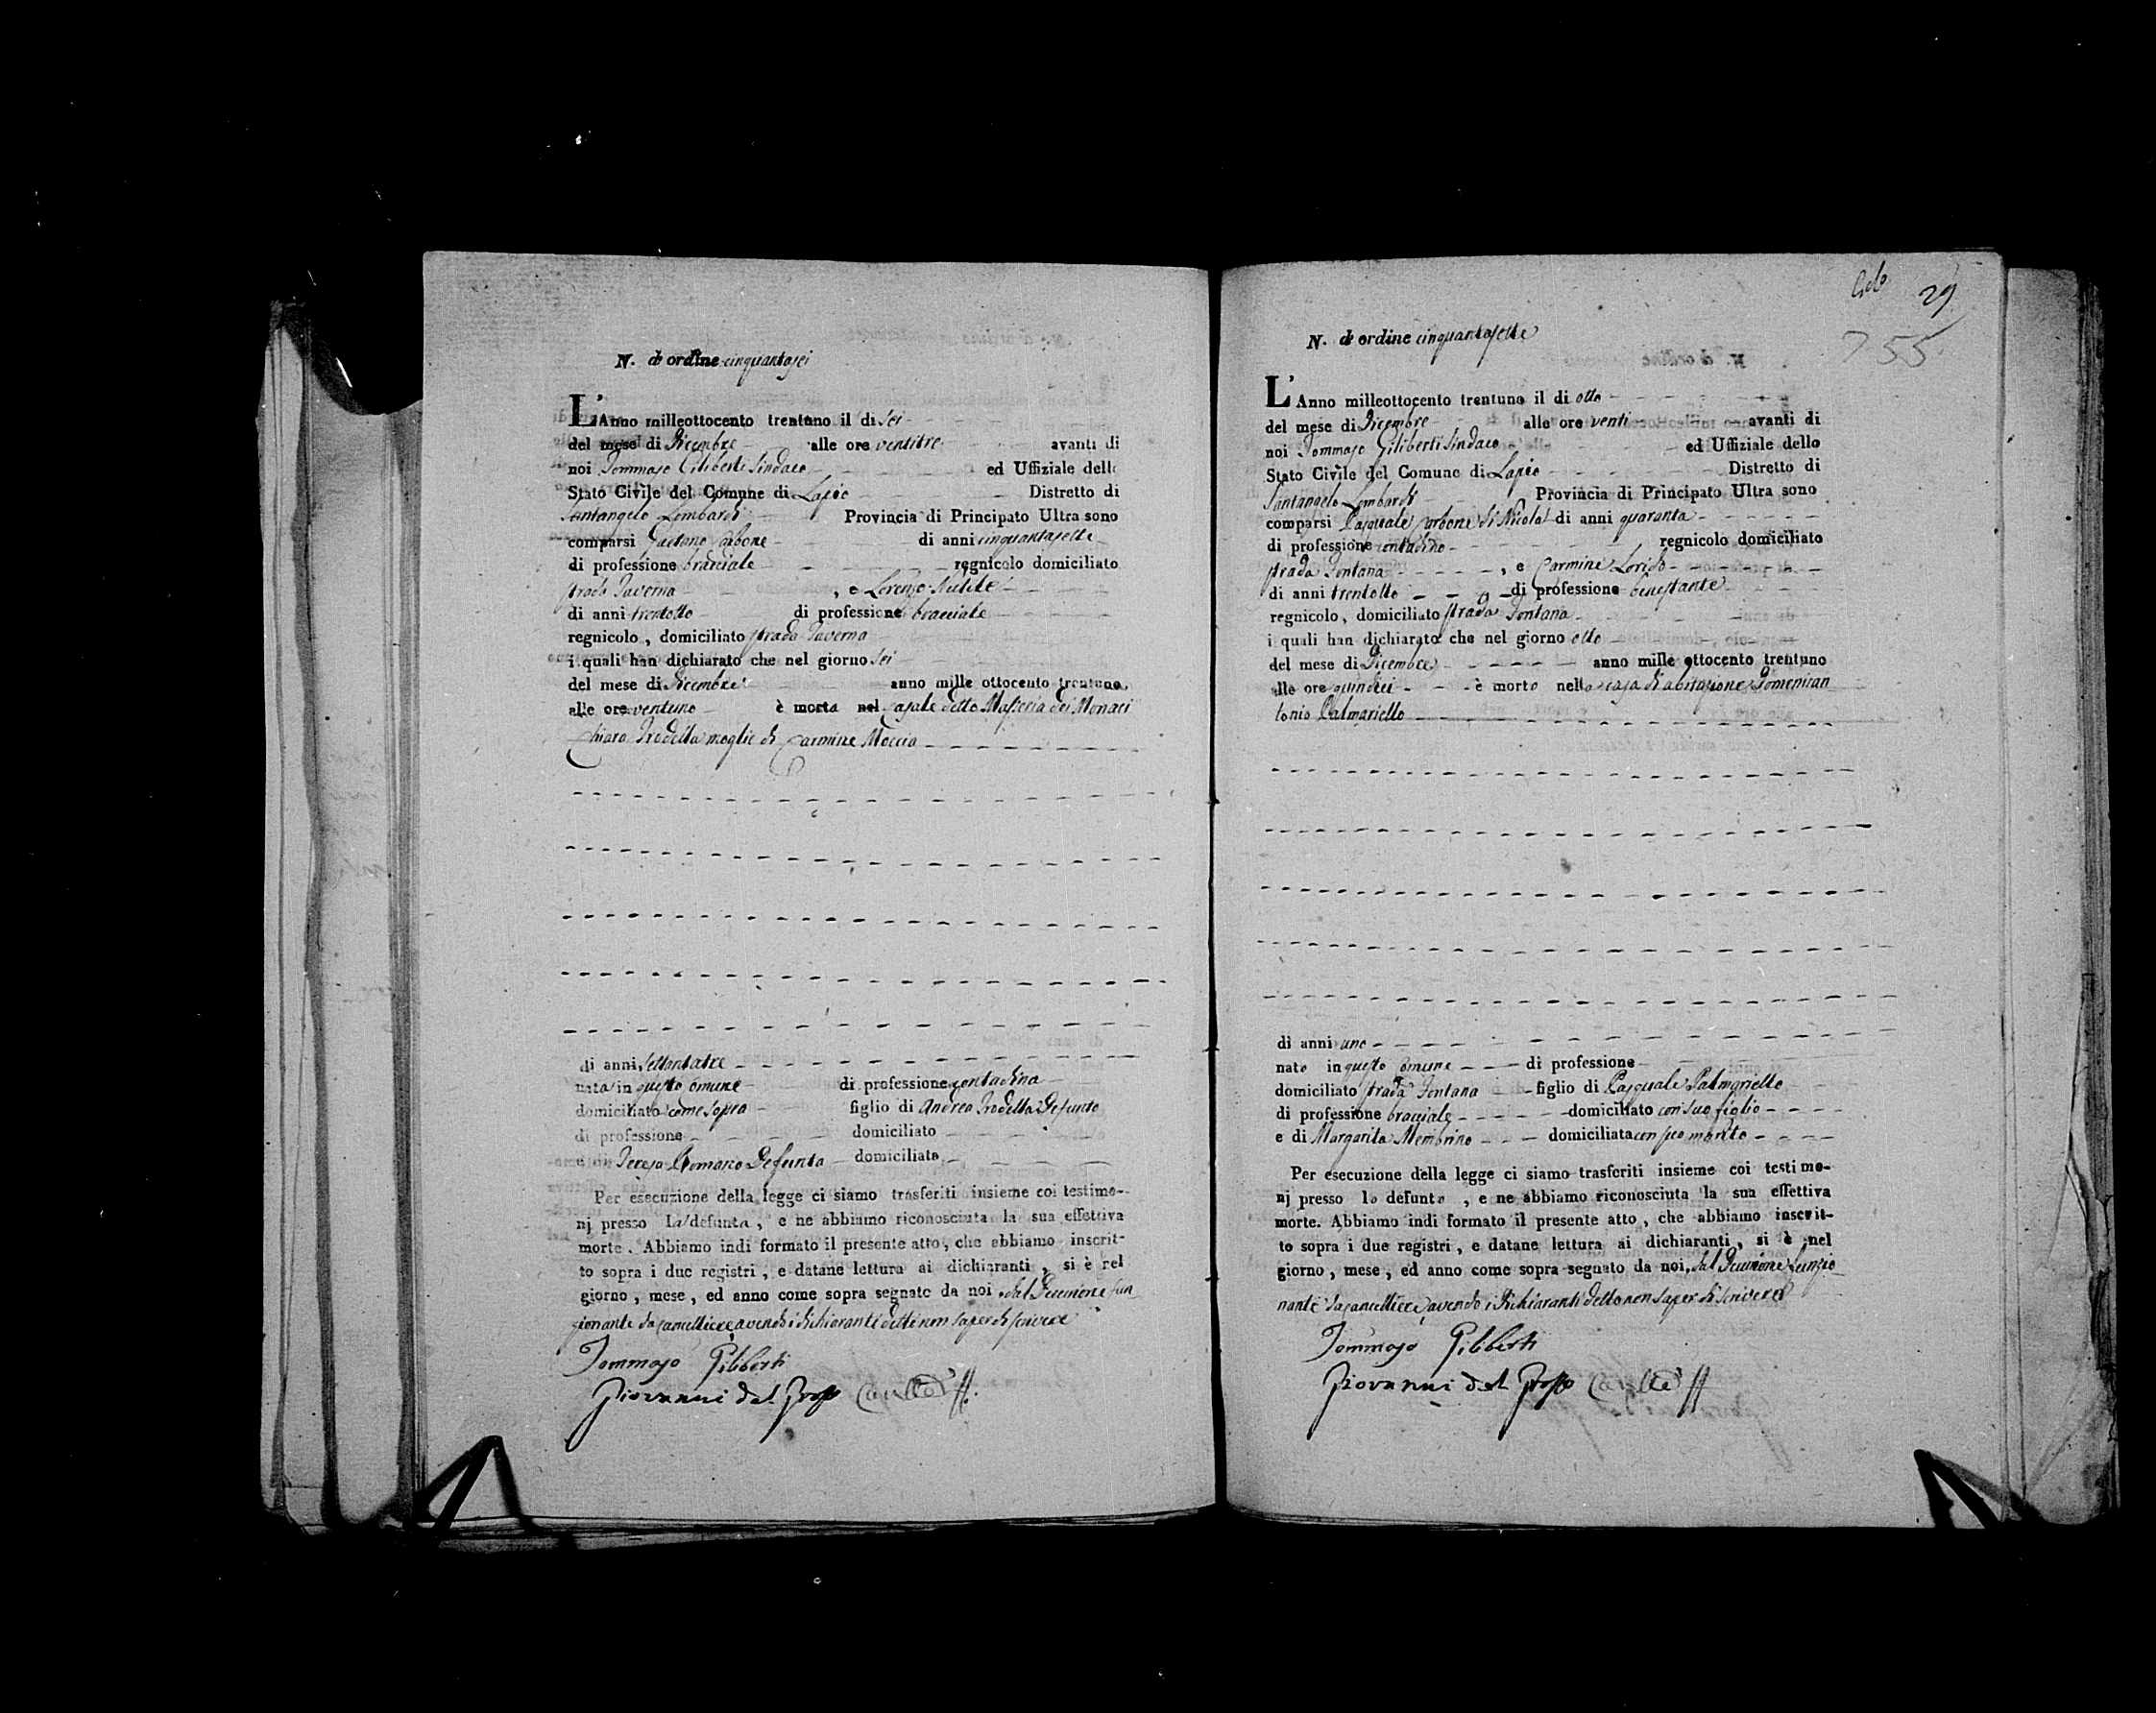 N. d'ordine cinquantasei
L'Anno milleottocento trentuno il di sei
del mese di Dicembre alle ore ventitre avanti di
noi Tommaso Giliberti Sindaco ed Uffiziale dello
Stato Civile del Comune di Lapio Distretto di
Santangelo Lombardi Provincia di Principato Ultra sono
comparsi Gaetano Carbone di anni cinquantasette
di professione bracciale regnicolo domiciliato
strada Taverna , e Lorenzo
di anni trentotto di professione bracciale
regnicolo, domiciliato strada Taverna
i quali han dichiarato che nel giorno sei
del mese di Dicembre anno mille ottocento trentuno,
alle ore ventuno è morta nel Casale detto Masseria dei Monaci
Chiara Trodella moglie di Carmine Moccia
di anni settantatre
nata in questo Comune di professione contadina
domiciliato come sopra figlio di Andrea Trodella Defunto
di professione domiciliato
Teresa Romano Defunta domiciliata
Per esecuzione della legge ci siamo trasferiti insieme coi testimo-
nj presso la defunta, e ne abbiamo riconosciuta la sua effettiva
morte. Abbiamo indi formato il presente atto, che abbiamo inscrit-
to sopra i due registri, e datane lettura ai dichiaranti, si è nel
giorno, mese, ed anno come sopra segnato da noi, dal Decurione fun
zionante da Cancelliere, avendo i dichiaranti detto non saper di scrivere
Tommaso Giliberti
Giovanni del Grosso
29
755
N. d'ordine cinquantasette
L'Anno milleottocento trentuno il di otto
del mese di Dicembre alle ore venti avanti di
noi Tommaso Giliberti Sindaco ed Uffiziale dello
Stato Civile del Comune di Lapio Distretto di
Santangelo Lombardi Provincia di Principato Ultra sono
comparsi Pasquale Carbone di Nicola di anni quaranta
di professione contadino regnicolo domiciliato
strada Fontana , e Carmine
di anni trentotto di professione benestante
regnicolo, domiciliato strada Fontana
i quali han dichiarato che nel giorno otto
del mese di Dicembre anno mille ottocento trentuno
alle ore quindici è morto nella casa di abitazione Domenican
tonio Palmariello
di anni uno
nato in questo Comune di professione
domiciliato strada Fontana figlio di Pasquale Palmariello
di professione bracciale domiciliato con suo figlio
e di Margarita Membrino domiciliata con suo marito
Per esecuzione della legge ci siamo trasferiti insieme coi testimo-
nj presso lo defunto , e ne abbiamo riconosciuta la sua effettiva
morte. Abbiamo indi formato il presente atto, che abbiamo inscrit-
to sopra i due registri, e datane lettura ai dichiaranti, si è nel
giorno, mese, ed anno come sopra segnato da noi, dal Decurione funzio
nante da Cancelliere, avendo i dichiaranti detto non saper di scrivere
Tommaso Giliberti
Giovanni del Grosso